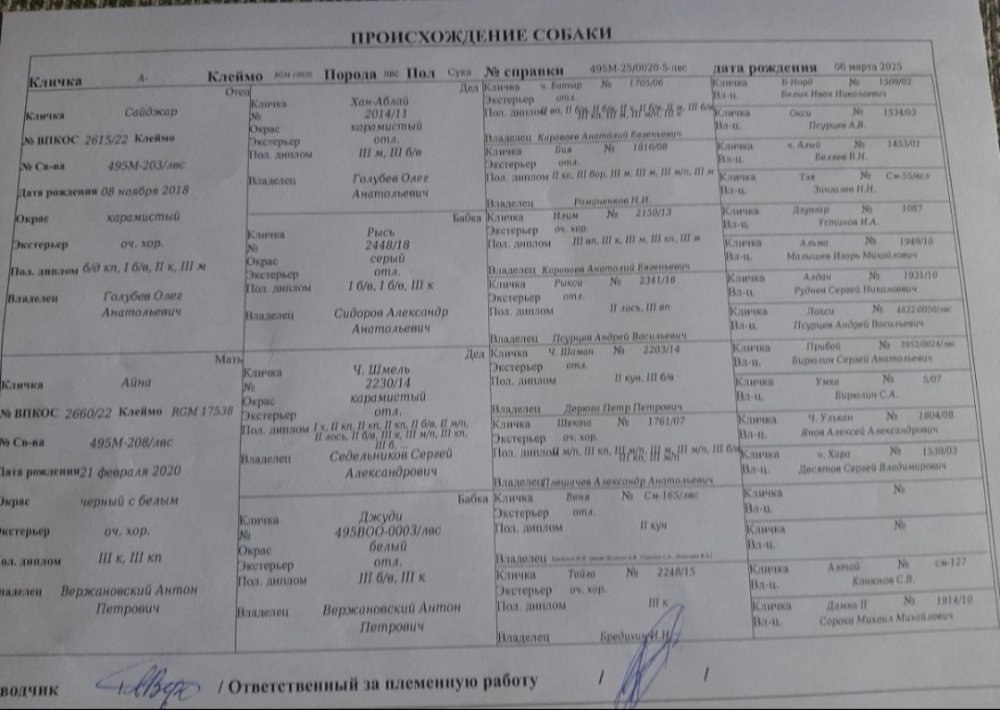 ПРОИСХОЖДЕНИЕ СОБАКИ
Кличка А- Клеймо RGM 19930 Порода лвс Пол Сука № справки 495М-25/0020-5-лвс дата рождения 06 марта 2025
Отец
Кличка Сайджар
№ ВПКОС 2615/22 Клеймо
№ Св-ва 495М-203/лвс
Дата рождения 08 ноября 2018
Окрас карамистый
Экстерьер оч. хор.
Пол. диплом б/д кп, I б/в, II к, III м
Владелец Голубев Олег
Анатольевич
Мать
Кличка Айна
№ ВПКОС 2660/22 Клеймо RGM 17538
№ Св-ва 495М-208/лвс
Дата рождения 21 февраля 2020
Окрас черный с белым
Экстерьер оч. хор.
Пол. диплом III к, III кп
Владелец Вержановский Антон
Петрович
Дед
Кличка Хан-Аблай
№ 2014/11
Окрас карамистый
Экстерьер отл.
Пол. диплом III м, III б/в
Владелец Голубев Олег
Анатольевич
Бабка
Кличка Рысь
№ 2448/18
Окрас серый
Экстерьер отл.
Пол. диплом I б/в, I б/в, III к
Владелец Сидоров Александр
Анатольевич
Дед
Кличка Ч. Шмель
№ 2230/14
Окрас карамистый
Экстерьер отл.
Пол. диплом I х, II кп, II кп, II кп, II б/в, II м/п,
II лось, II б/в, III к, III м/п, III кп,
III б, ...
Владелец Седельников Сергей
Александрович
Бабка
Кличка Джуди
№ 495ВОО-0003/лвс
Окрас белый
Экстерьер отл.
Пол. диплом III б/в, III к
Владелец Вержановский Антон
Петрович
Кличка ч. Батыр № 1705/06
Экстерьер отл.
Пол. диплом
Владелец Караваев Анатолий Евгеньевич
Кличка Бия № 1816/08
Экстерьер отл.
Пол. диплом II кс, III бор, III м, III м, III м/п, III м
Владелец Романенков Н.И.
Кличка Илим № 2150/13
Экстерьер оч. хор.
Пол. диплом III вп, III к, III м, III кп, III м
Владелец Караваев Анатолий Евгеньевич
Кличка Рыкси № 2341/16
Экстерьер отл.
Пол. диплом II лось, III вп
Владелец Псурцев Андрей Васильевич
Кличка Ч. Шаман № 2203/14
Экстерьер отл.
Пол. диплом II кун, III б/в
Владелец Петр Петрович
Кличка Шекта № 1761/07
Экстерьер оч. хор.
Пол. диплом
Владелец Плешачев Александр Анатольевич
Кличка Веня № См-165/лвс
Экстерьер отл.
Пол. диплом II кун
Владелец
Кличка Тайга № 2248/15
Экстерьер оч. хор.
Пол. диплом III к
Владелец Бредихин И.И.
Кличка В-Норд № 1509/02
Вл-ц. Белых Иван Николаевич
Кличка Окси № 1534/03
Вл-ц. Псурцев А.В.
Кличка ч. Алый № 1453/01
Вл-ц. Беляев В.Н.
Кличка Тэя № См-55/всл
Вл-ц. Н.Н.
Кличка Даунгар № 1087
Вл-ц. Устинов И.А.
Кличка Альма № 1949/10
Вл-ц. Малышев Игорь Михайлович
Кличка Алдан № 1931/10
Вл-ц. Руднев Сергей Николаевич
Кличка Лакси № 4822-0050/лвс
Вл-ц. Псурцев Андрей Васильевич
Кличка Прибой № 3952/0024/лвс
Вл-ц. Бирюлин Сергей Анатольевич
Кличка Умка № 5/07
Вл-ц. Бирюлин С.А.
Кличка Ч. Улькан № 1804/08
Вл-ц. Янов Алексей Александрович
Кличка ч. Хара № 1539/03
Вл-ц. Десятов Сергей Владимирович
Кличка №
Вл-ц.
Кличка №
Вл-ц.
Кличка Алтай № см-127
Вл-ц. Конюхов С.В.
Кличка Дамка II № 1914/10
Вл-ц. Сорока Михаил Михайлович
водчик / Ответственный за племенную работу / /